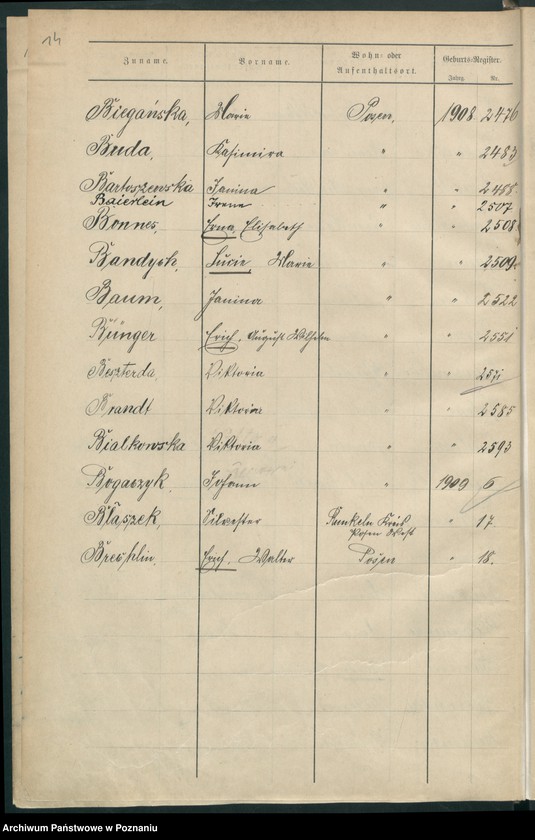 14
Zuname. Vorname. Wohn- oder Aufenthaltsort. Geburts-Register.
Jahrg. Nr.
Biegańska, Marie Posen, 1908 2476
Buda, Kasimira " " 2483
Bartoszewska Janina " " 2488
Baierlein Irene " " 2507
Bonnes, Erna, Elisabeth " " 2508
Bandysh, Lucie Marie " " 2509
Baum, Janina " " 2522
Bünger Erich, August Wilhelm " " 2551
Beszterda, Viktoria " " 2571
Brandt Viktoria " " 2585
Bialkowska Viktoria " " 2593
Bogaczyk, Johann " 1909 6
Blaszek, Silvester Kreis " 17.
Posen West
Breshlin, Erich, Walter Posen " 18.
Archiwum Państwowe w Poznaniu